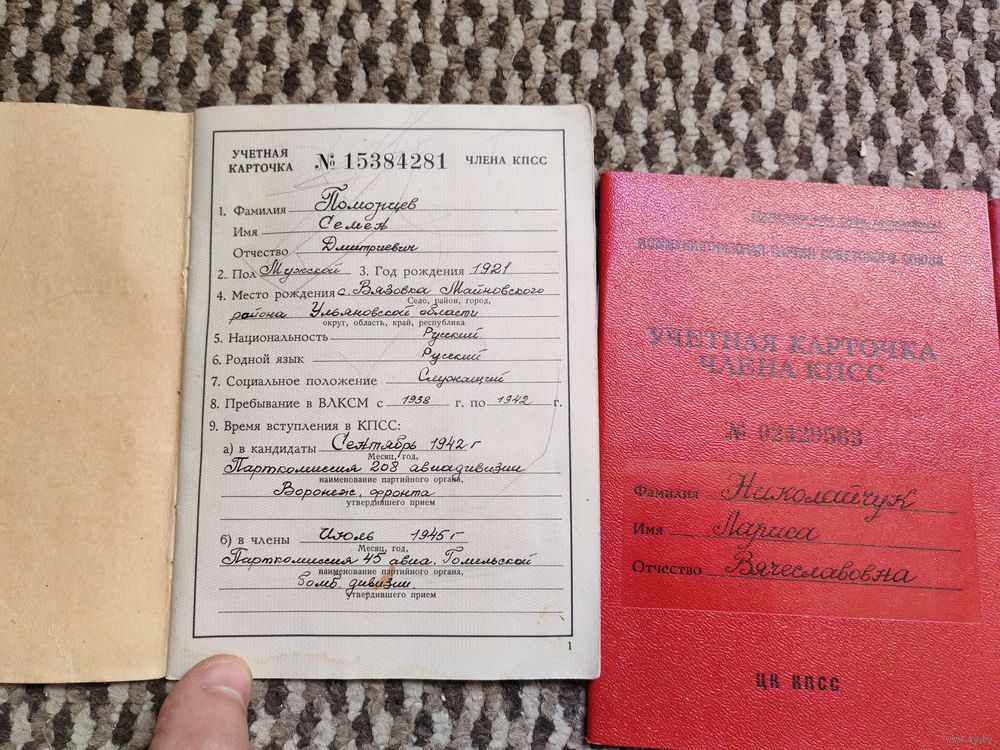 УЧЕТНАЯ КАРТОЧКА № 15384281 ЧЛЕНА КПСС
1. Фамилия Поморцев
Имя Семен
Отчество Дмитриевич
2. Пол Мужской 3. Год рождения 1921
4. Место рождения с. Вязовка Майновского
Село, район, город,
района Ульяновской области
округ, область, край, республика
5. Национальность Русский
6. Родной язык Русский
7. Социальное положение Служащий
8. Пребывание в ВЛКСМ с 1938 г. по 1942 г.
9. Время вступления в КПСС:
а) в кандидаты Сентябрь 1942 г
Месяц, год,
Парткомиссия 208 авиадивизии
наименование партийного органа,
Воронеж. фронта
утвердившего прием
б) в члены Июль 1945 г
Месяц, год,
Парткомиссия 45 авиа. Гомельской
наименование партийного органа,
бомб. дивизии.
утвердившего прием
1
Пролетарии всех стран, соединяйтесь!
КОММУНИСТИЧЕСКАЯ ПАРТИЯ СОВЕТСКОГО СОЮЗА
УЧЕТНАЯ КАРТОЧКА
ЧЛЕНА КПСС
№ 02429563
Фамилия Николайчук
Имя Лариса
Отчество Вячеславовна
ЦК КПСС
www.ay.by